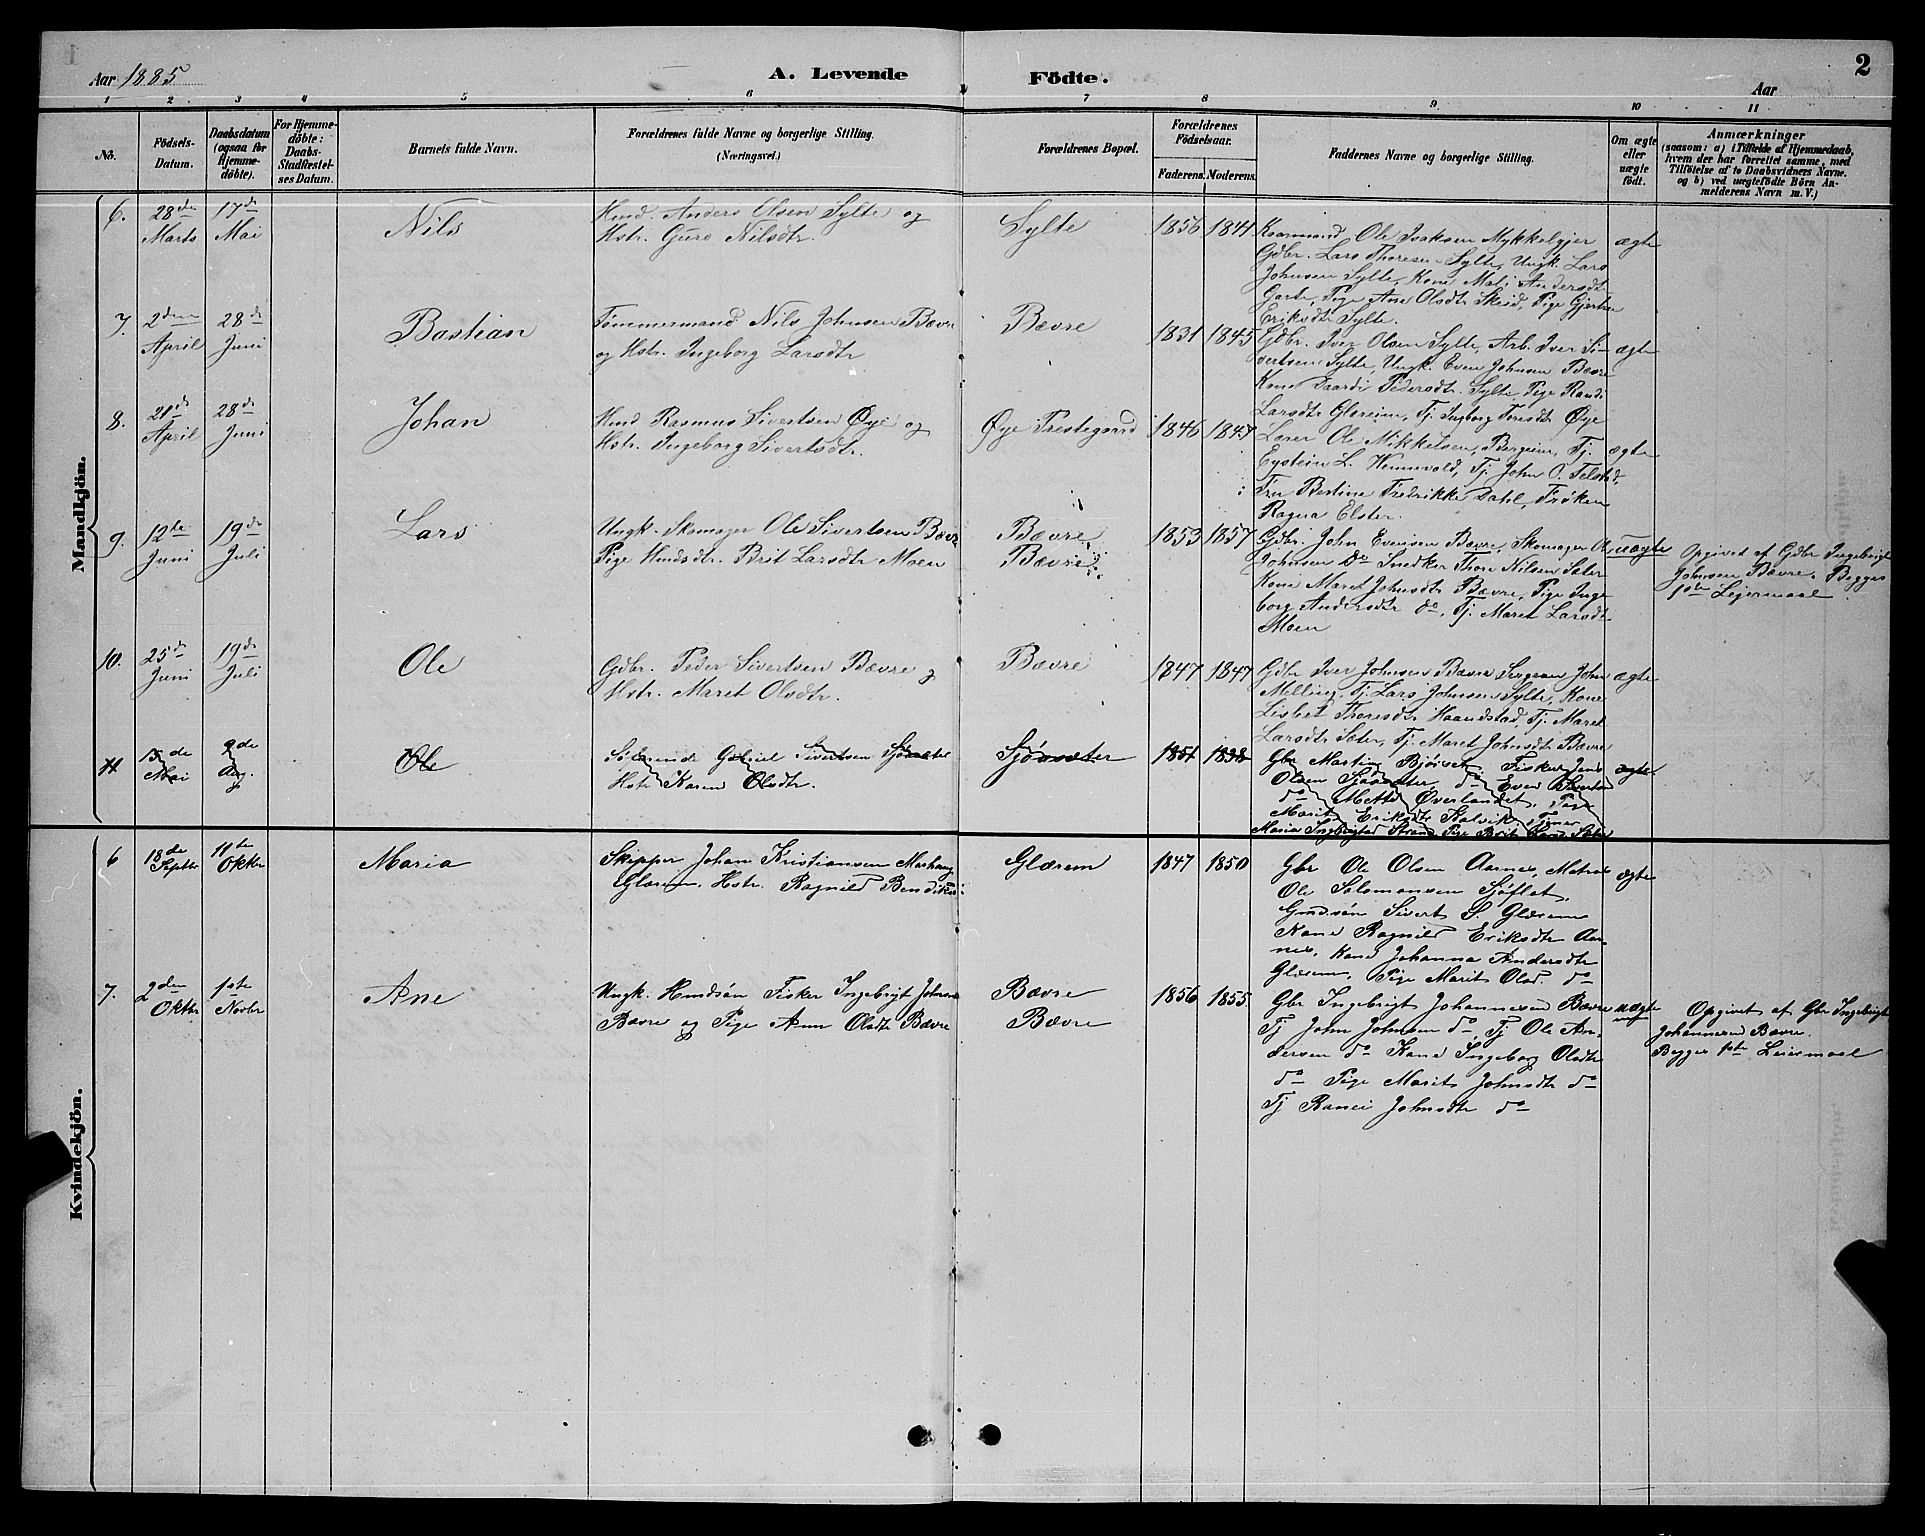 Aar 1885
A. Levende Födte.
Aar
2
1 2. 3 4 5 6 7 8 9 10 11
No.
Födsels-Datum.
Daabsdatum (ogsaa for Hjemmedöbte).
For Hjemmedöbte: Daabs-Stadfæstelses Datum.
Barnets fulde Navn.
Forældrenes fulde Navne og borgerlige Stilling. (Næringsvei.)
Forældrenes Bopæl.
Forældrenes Födselsaar.
Faderens. Moderens.
Faddernes Navne og borgerlige Stilling.
Om ægte eller uægte födt.
Anmærkninger
(saasom: a) i Tilfælde af Hjemmedaab, hvem der har forrettet samme, med Tilföielse af to Daabsvidners Navne. og b) ved uægtefödte Börn Anmelderens Navn m. V.)
Mandkjön.
6. 28de Marts 17de Mai
Nils
Hmd. Anders Olsen Sylte og
Hstr. Guro Nilsdtr.
Sylte
1856 1841
Kaarmand Ole Isaksen Mykkelgjer
Gdbr. Lars Thoresen Sylte, Ungk. Lars
Johnsen Sylte, Kone Mali Andersdt
Garte, Pige Ane Olsdtr Skeid, Pige
Eriksdtr Sylte.
ægte
7. 2den April 28de Juni
Bastian
Tömmermand Nils Johnsen Bævre
og Hstr. Ingeborg Larsdtr
Bævre
1831 1845
Gdbr. Iver Olsen Sylte, Arb. Iver Si-
vertsen Sylte, Ungk. Even Johnsen Bævre
Kone Pedersdtr. Sylte, Pige Randi
Larsdtr Glæreim, Tj. Ingborg Toresdtr Øye
ægte
8. 21de April 28de Juni
Johan
Hmd Rasmus Sivertsen Øye og
Hstr. Ingeborg Sivertsdtr.
Øye Prestegaard
1846 1847
Lærer Ole Mikkelsen Bergeim, Tj.
Eystein L. Hennevold, Tj. John O. Telstad,
Fru Bertine Fredrikke Dahl, Fröken
Ragna Elster.
ægte
9. 12te Juni 19de Juli
Lars
Ungk. Skomager Ole Sivertsen Bævre
Pige Hmdsdtr. Brit Larsdtr Moen
Bævre
Bævre
1853 1857
Gdbr. John Evensen Bævre, Skomager O.
Johnsen Do Snedker Thore Nilsen Sæter
Kone Maret Johnsdtr Bævre, Pige Inge
borg Andersdtr do, Tj. Maret Larsdtr
Moen
uægte
Opgivet af Gdbr Ingebrigt
Johnsen Bævre. Begges
1ste Lejermaal
10. 25de Juni 19de Juli
Ole
Gdbr. Peder Sivertsen Bævre og
Hstr. Maret Olsdtr.
Bævre
1847 1847
Gdbr Iver Johnsen Bævre Sergeant John
Melling, Tj. Lars Johnsen Sylte, Kone
Lisbet Thoresdtr Haandstad, Tj. Maret
Larsdtr Sæter, Tj. Maret Johnsdtr Bævre
ægte
11 15de Mai 9de Aug.
Ole
Selveiende Gabriel Sivertsen Sjøsæter
Hstr Karen Olsdtr.
Sjøsæter
1851 1838
Gbr Martin Björset, Fisker Jens
Olsen Sjøsæter, do Even Sivertsen
do Mette Överlandet, Pige
Marit Eriksdtr Kalvik, Tjener
Maria Ingebrigtsd Strand Pige Brit Larsd Sæter
ægte
Kvindekjön.
6 18de Septbr 11te Oktbr
Maria
Skipper Johan Kristiansen Marhaug
Glærem, Hstr. Ragnild Bendiks:
Glærem
1847 1850
Gbr Ole Olsen Aarnes, Matros
Ole Salomonsen Sjöflot,
Gmdssön Sivert S. Glærem
Kone Ragnild Eriksdtr Aar-
nes, Kone Johanna Andersdtr
Glærem, Pige Marit Olsd. do
ægte
7. 2den Oktbr 1ste Novbr
Ane
Ungk. Hmdsön Fisker Ingebrigt Johnsen
Bævre og Pige Ann Olsdtr Bævre
Bævre
Bævre
1856 1855
Gbr Ingebrigt Johannesen Bævre
Tj John Johnsen do, Tj Ole An-
dersen do Kone Ingeborg Olsdtr
do Pige Marit Johnsdtr do
Tj Ranei Johnsdtr do
uægte
Opgivet af Gbr Ingebrigt
Johannesen Bævre.
Begges 1ste Leiermaal